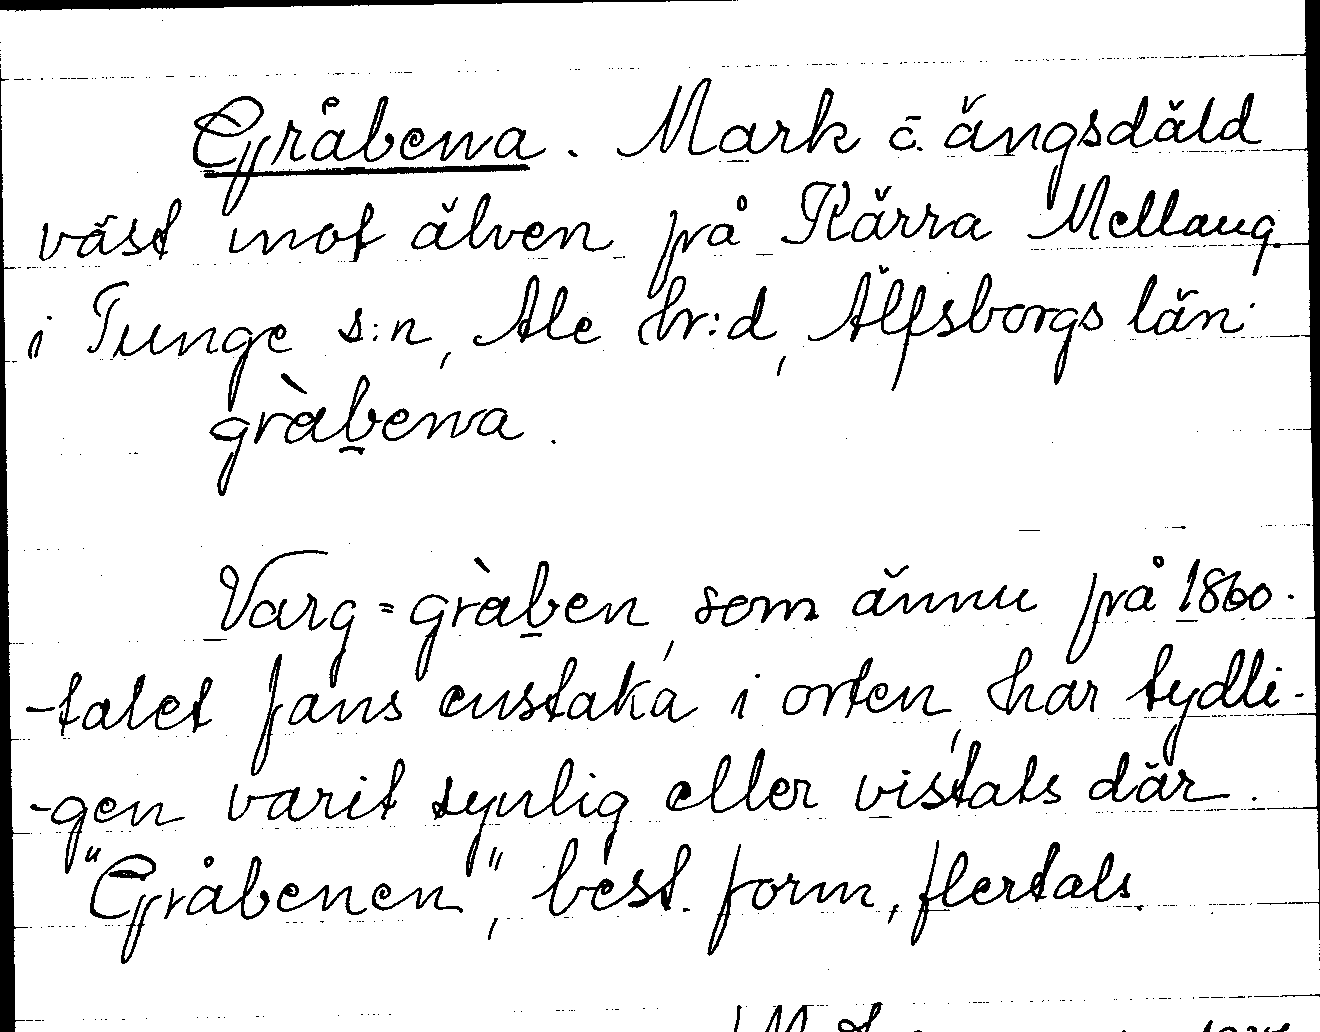 Gråbena. Mark c̄. ängsdäld
väst mot älven på Kärra Mellang.
i Tunge s:n, Ale hr:d, Älfsborgs län.
gràbena.
Varg=gràben, som ännu på 1860-
-talet fans enstaka i orten, har tydli-
-gen varit synlig eller vistats där.
"Gråbenen", best. form, flertals.